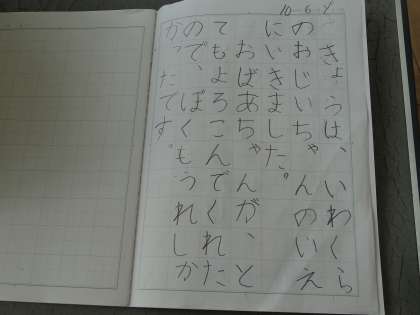 10-6-4
きょうは、いわくら
のおじいちゃんのいえ
にいきました。
おばあちゃんが、と
てもよろこんでくれた
ので、ぼくもうれしか
かったです。